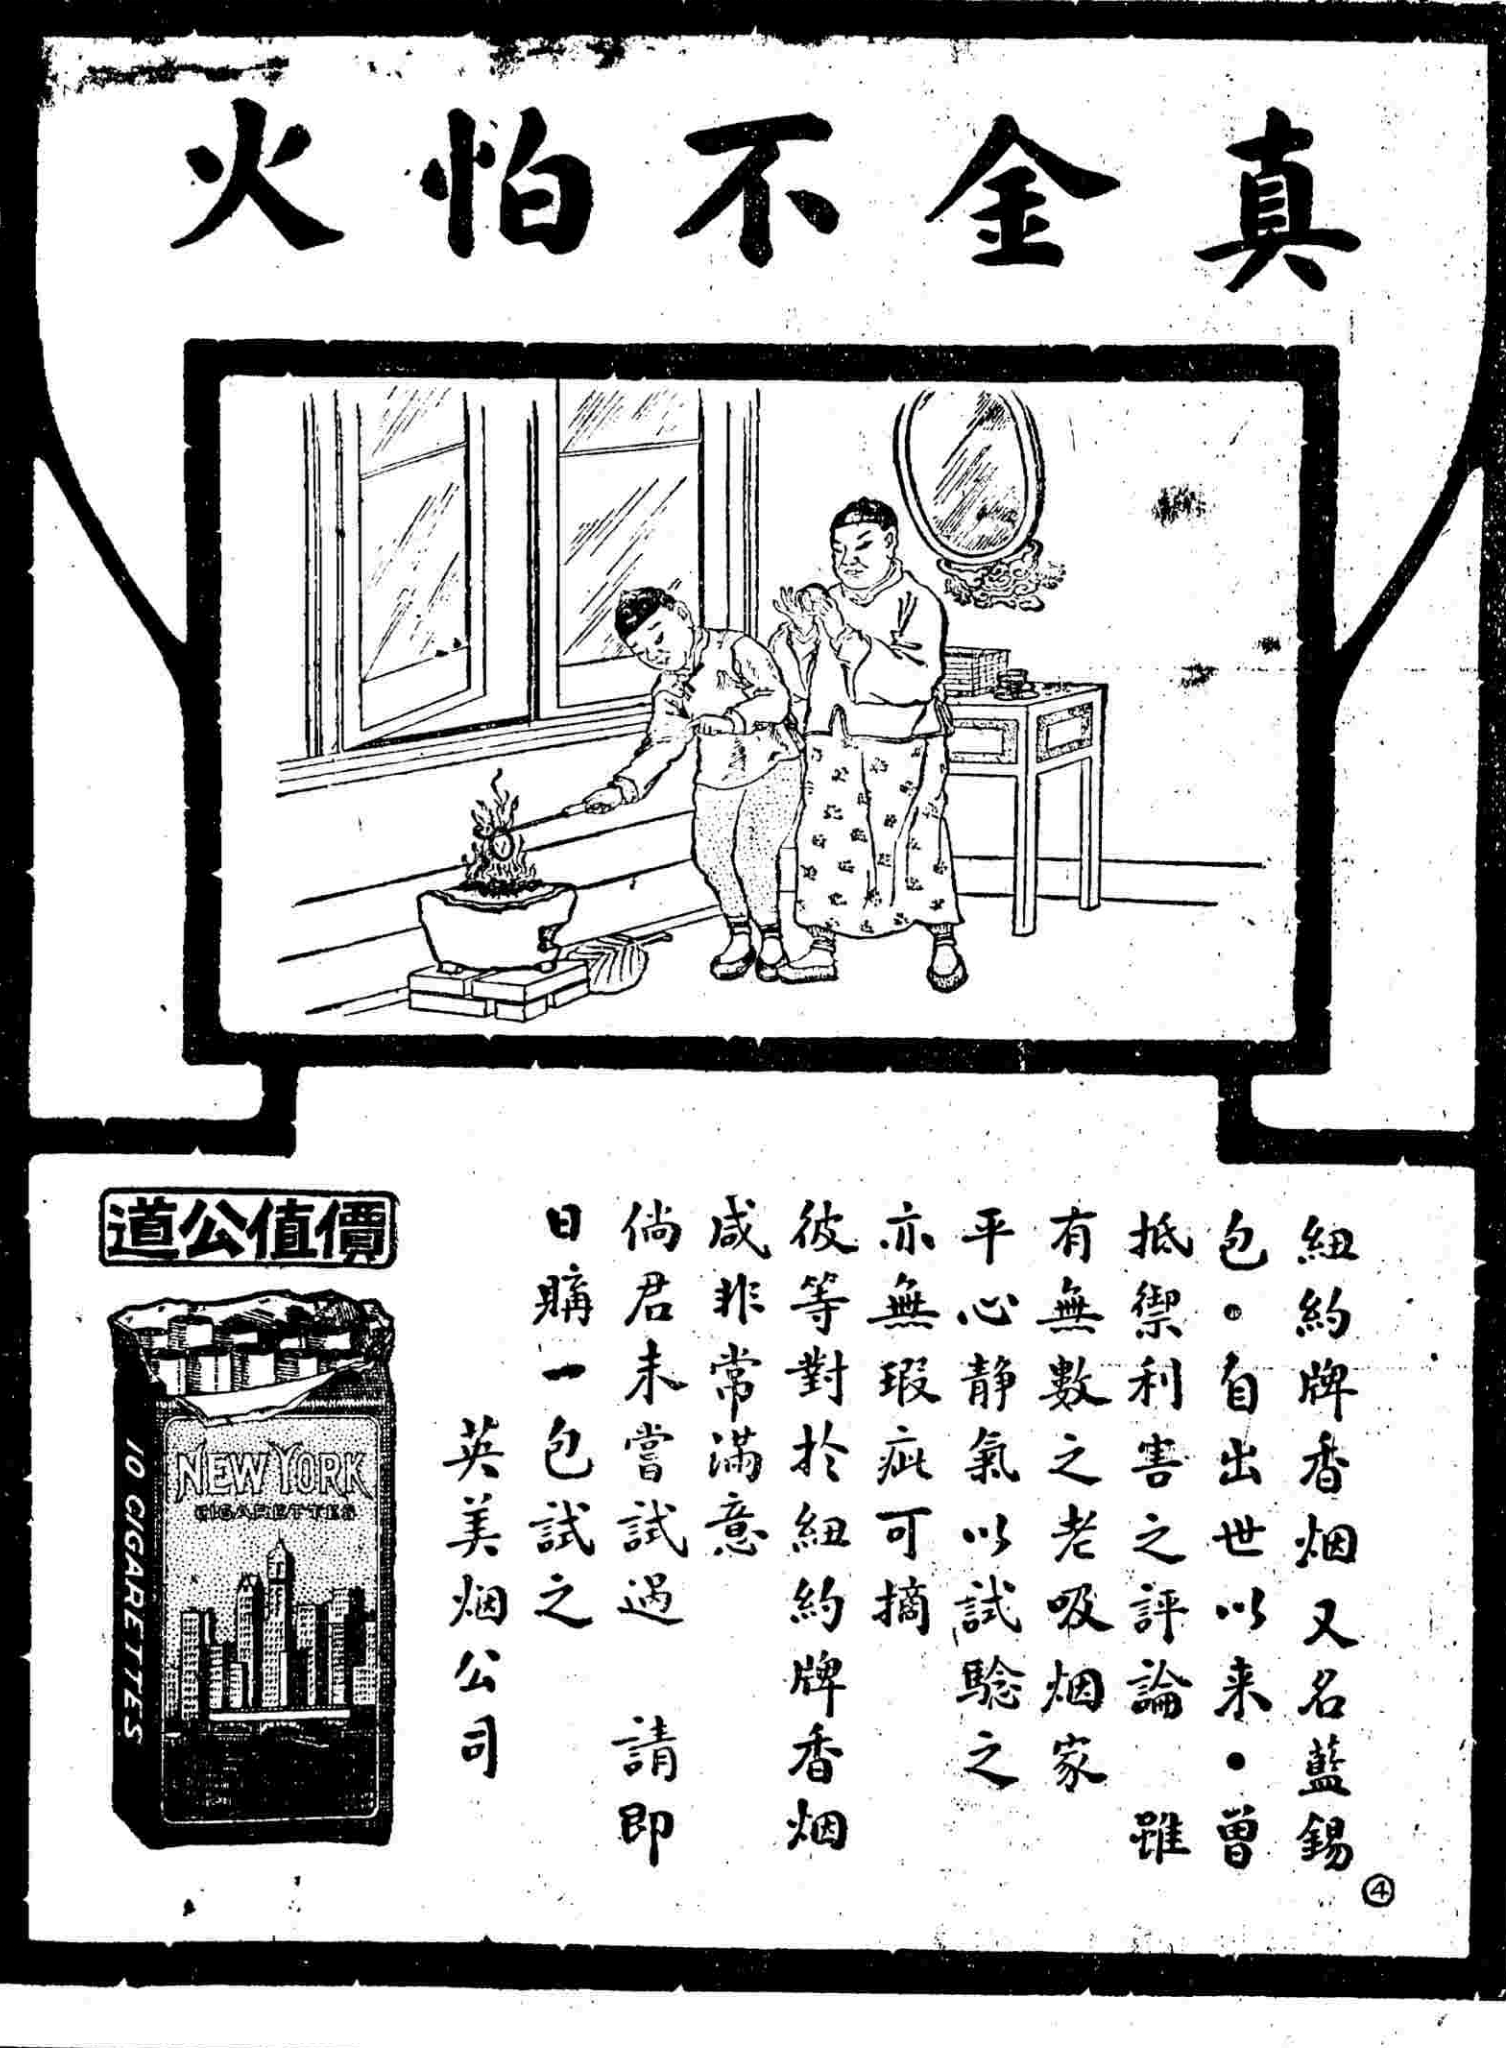 真金不怕火
紐約牌香烟又名藍錫
包•自出世以来•曾
抵禦利害之評論 雖
有無數之老吸烟家
平心静氣以試驗之
亦無瑕疵可摘
彼等對於紐約牌香烟
咸非常滿意
倘君未嘗試过 請即
日購一包試之
英美烟公司
④
價值公道
NEW YORK
CIGARETTES
10 CIGARETTES